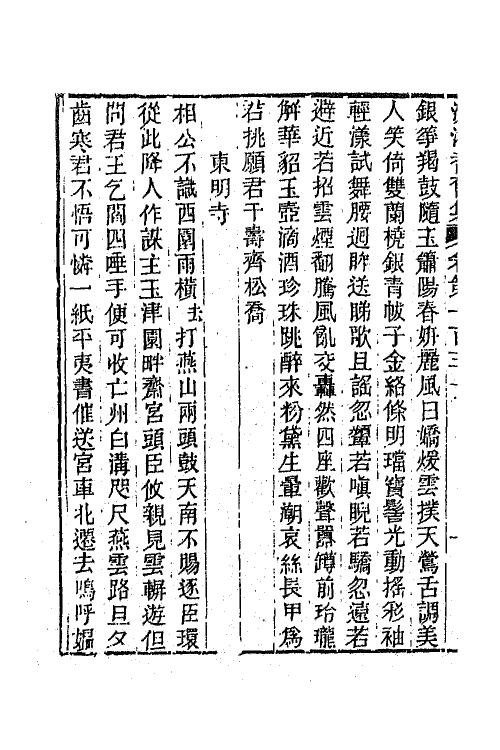 銀箏羯鼓隨玉簫陽春妍麗風日嬌煖雲撲天鶯舌調美
人笑倚雙蘭橈銀青帔子金絡條明璫寶髻光動搖彩袖
輕漾試舞腰迴眸送睇歌且謠忽顰若嗔睨若驕忽遠若
避近若招雲煙翻騰風亂交轟然四座歡聲囂蹲前玲瓏
解華貂玉壺滴酒珍珠跳醉來粉黛生暈潮哀絲長甲為
君挑願君千壽齊松喬
東明寺
相公不識西園雨橫击打燕山兩頭鼓天南不賜逐臣環
從此降人作謀主玉津園畔齋宮頭臣攸親見雲輧遊但
問君王乞閻四唾手便可收亡州白溝咫尺燕雲路旦夕
齒寒君不悟可憐一紙平夷書催送宮車北遷去嗚呼嫗